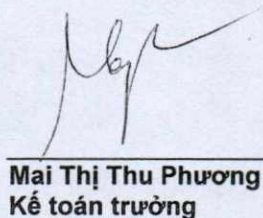 Mai Thị Thu Phương
Kế toán trưởng